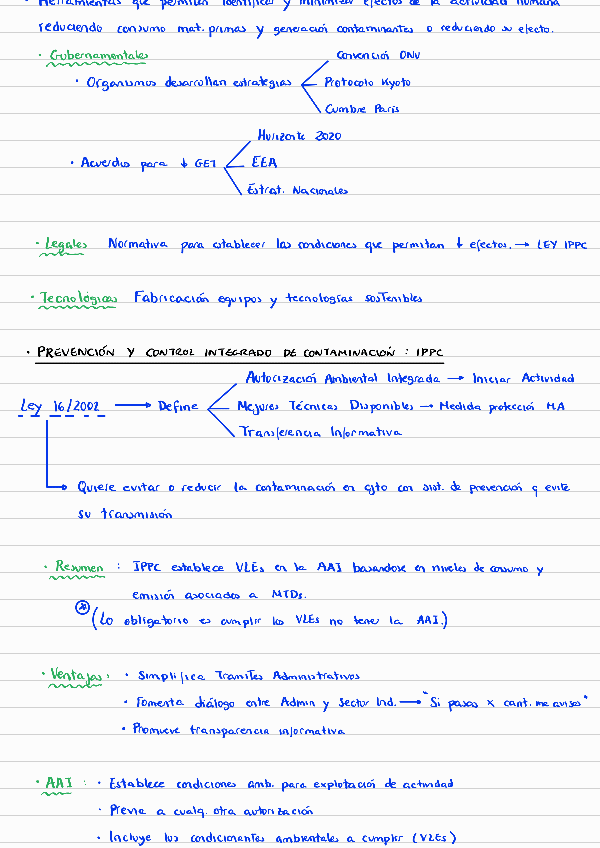 · Herramientas que permitan identificar y minimizar efectos de la actividad humana
reduciendo consumo mat. primas y generación contaminantes o reduciendo su efecto.
· Gubernamentales
Convención ONU
· Organismos desarrollan estrategias
Protocolo Kyoto
Cumbre París
Horizonte 2020
· Acuerdos para ↓ GEI
EEA
Estrat. Nacionales
· Legales Normativa para establecer las condiciones que permitan ↓ efectos. → LEY IPPC
· Tecnológicas Fabricación equipos y tecnologías sostenibles
· PREVENCIÓN Y CONTROL INTEGRADO DE CONTAMINACIÓN : IPPC
Autorización Ambiental Integrada → Iniciar Actividad
Ley 16/2002 → Define
Mejores Técnicas Disponibles → Medida protección MA
Transferencia Informativa
Quiere evitar o reducir la contaminación en cjto con sist. de prevención q evite
su transmisión
· Resumen : IPPC establece VLEs en la AAI basandose en niveles de consumo y
emisión asociados a MTDs.
(Lo obligatorio es cumplir los VLEs no tener la AAI.)
· Ventajas: · Simplifica Tramites Administrativos
· Fomenta diálogo entre Admin y Sector Ind. → "Si pasas x cant. me avisas"
· Promueve transparencia informativa
· AAI : · Establece condiciones amb. para explotación de actividad
· Previa a cualq. otra autorización
· Incluye los condicionantes ambientales a cumplir (VLEs)